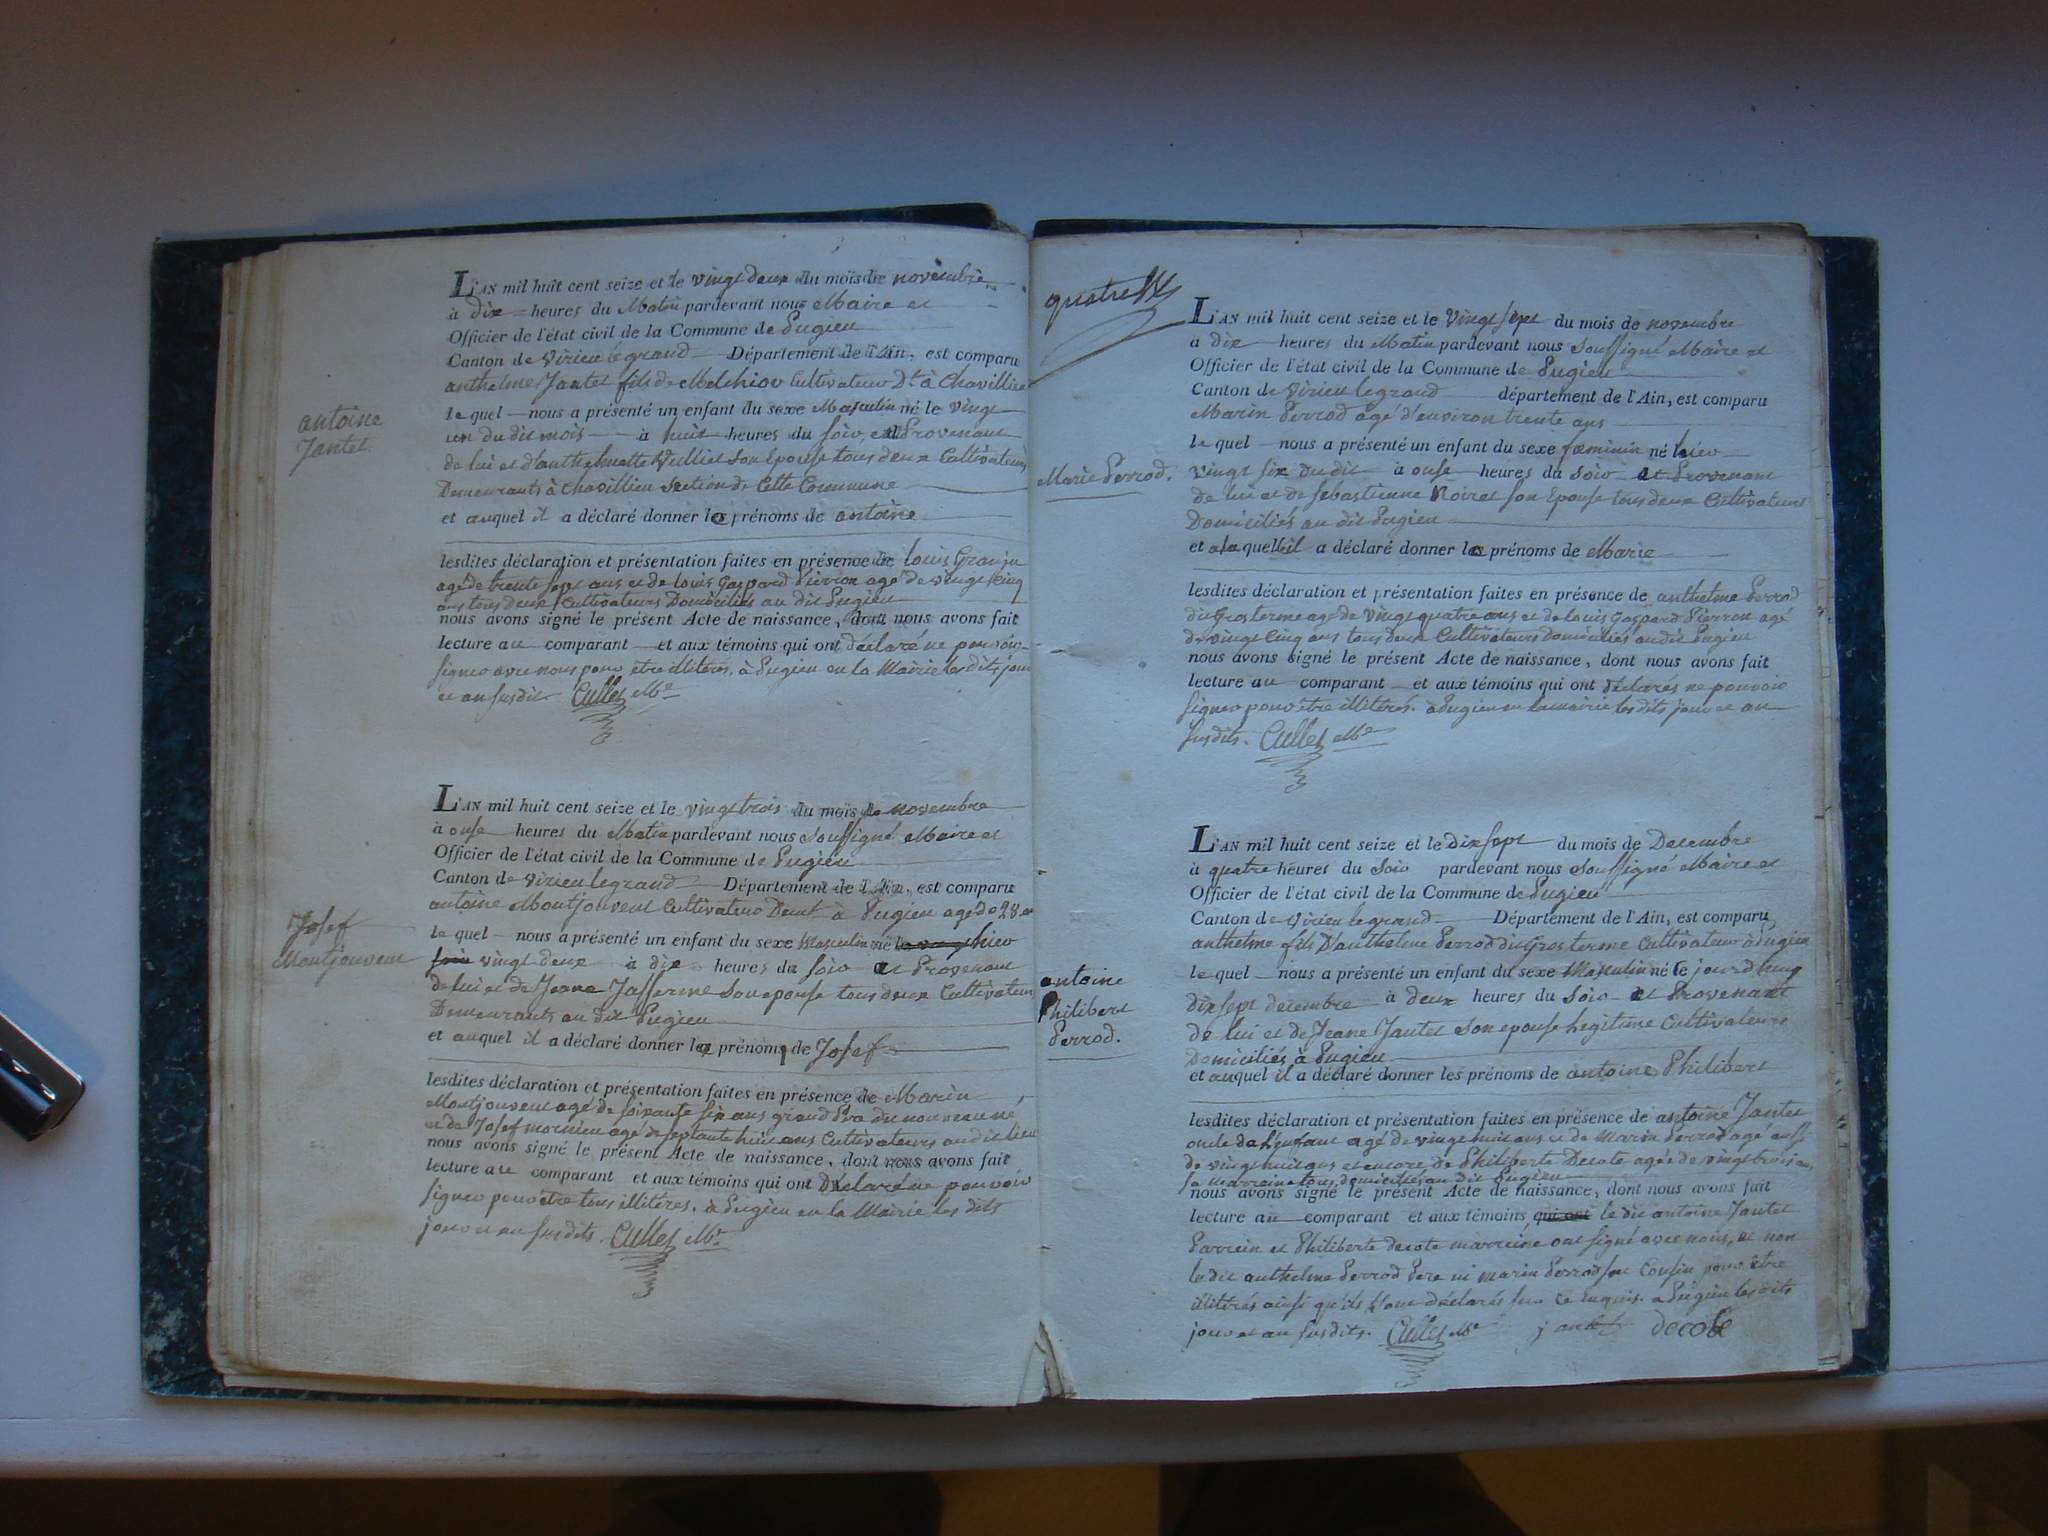 L'AN mil huit cent seize et le vingt deux du mois de novembre
à dix heures du Matin pardevant nous Maire et
Officier de l'état civil de la Commune de Pugieu
Canton de Virieu le grand Département de l'Ain, est comparu
anthelme Jantet fils de Melchior Cultivateur Dt à Chavillieu
le quel nous a présenté un enfant du sexe Masculin né le vingt
un du dit mois à huit heures du soir, et Provenant
de lui et d'anthelmette Vulliet son Epouse tous deux Cultivateurs
Demeurants à Chavillieu Section de Cette Commune
et auquel il a déclaré donner les prénoms de antoine
antoine
Jantet
lesdites déclaration et présentation faites en présence de louis Granju
agé de trente sept ans et de louis Gaspard Pierron agé de vingt Cinq
ans tous deux Cultivateurs Domiciliés au dit Pugieu
nous avons signé le présent Acte de naissance, dont nous avons fait
lecture au comparant et aux témoins qui ont déclaré ne pouvoir
signer avec nous pour être illitérés. à Pugieu en la Mairie les dits jour
et an susdit Cullet Me
L'AN mil huit cent seize et le vingt trois du mois de novembre
à onse heures du Matin pardevant nous Soussigné Maire et
Officier de l'état civil de la Commune de Pugieu
Canton de Virieu le grand Département de l'Ain, est comparu
antoine Montjouvent Cultivateur Demt à Pugieu agé de 28 an
le quel nous a présenté un enfant du sexe Masculin né hier
vingt deux à dix heures du soir et Provenant
de lui et de Jeane Jasserme son epouse tous deux Cultivateurs
Demeurants au dit Pugieu
et auquel il a déclaré donner les prénoms de Josef
Josef
Montjouvent
lesdites déclaration et présentation faites en présence de Marin
Montjouvent agé de soixante six ans grand Père du nouveau né,
et de Josef mornieu agé de septante huit ans Cultivateurs au dit lieu
nous avons signé le présent Acte de naissance, dont nous avons fait
lecture au comparant et aux témoins qui ont Déclaré ne pouvoir
signer pour être tous illitérés. à Pugieu en la Mairie les dits
jour et an susdits. Cullet Me
quatre
L'AN mil huit cent seize et le vingt sept du mois de novembre
a dix heures du Matin pardevant nous soussigné Maire et
Officier de l'état civil de la Commune de Pugieu
Canton de Virieu le grand département de l'Ain, est comparu
Marin Perrod agé d'environ trente ans
le quel nous a présenté un enfant du sexe fœminin né hier
vingt six du dit à onse heures du soir et Provenant
de lui et de Sebastienne Noiret son Epouse tous deux Cultivateurs
Domiciliés au dit Pugieu
et a la quelle il a déclaré donner les prénoms de Marie
Marie Perrod.
lesdites déclaration et présentation faites en présence de anthelme Perrod
dit Gros terme agé de vingt quatre ans et de louis Gaspard Pierron agé
de vingt Cinq ans tous deux Cultivateurs domiciliés au dit Pugieu
nous avons signé le présent Acte de naissance, dont nous avons fait
lecture au comparant et aux témoins qui ont déclarés ne pouvoir
signer pour être illitérés. à Pugieu en la mairie les dits jour et an
susdits. Cullet Me
L'AN mil huit cent seize et le Dix sept du mois de Decembre
à quatre heures du Soir pardevant nous Soussigné Maire et
Officier de l'état civil de la Commune de Pugieu
Canton de Virieu le grand Département de l'Ain, est comparu
anthelme fils D'anthelme Perrod dit Gros terme Cultivateur à Pugieu
le quel nous a présenté un enfant du sexe Masculin né le jourd'huy
dix sept decembre à deux heures du Soir et Provenant
de lui et de Jeane Jantet son epouse Legitime Cultivateurs
Domiciliés à Pugieu
et auquel il a déclaré donner les prénoms de antoine Philibert
antoine
Philibert
Perrod.
lesdites déclaration et présentation faites en présence de antoine Jantet
oncle de L'enfant agé de vingt huit ans et de Marin Perrod agé aussi
de vingt huit ans et encore de Philiberte Decote agée de vingt trois ans,
sa marreine tous domiciliés au dit Pugieu
nous avons signé le présent Acte de naissance, dont nous avons fait
lecture au comparant et aux témoins qui ont le dit antoine Jantet
Parrein et Philiberte decote marreine ont signé avec nous, et non
le dit anthelme Perrod Pere ni marin Perrod son Cousin pour être
illitérés ainsi qu'ils l'ont déclarés sur ce enquis. a Pugieu les dits
jour et an susdits. Cullet Me jantet decote